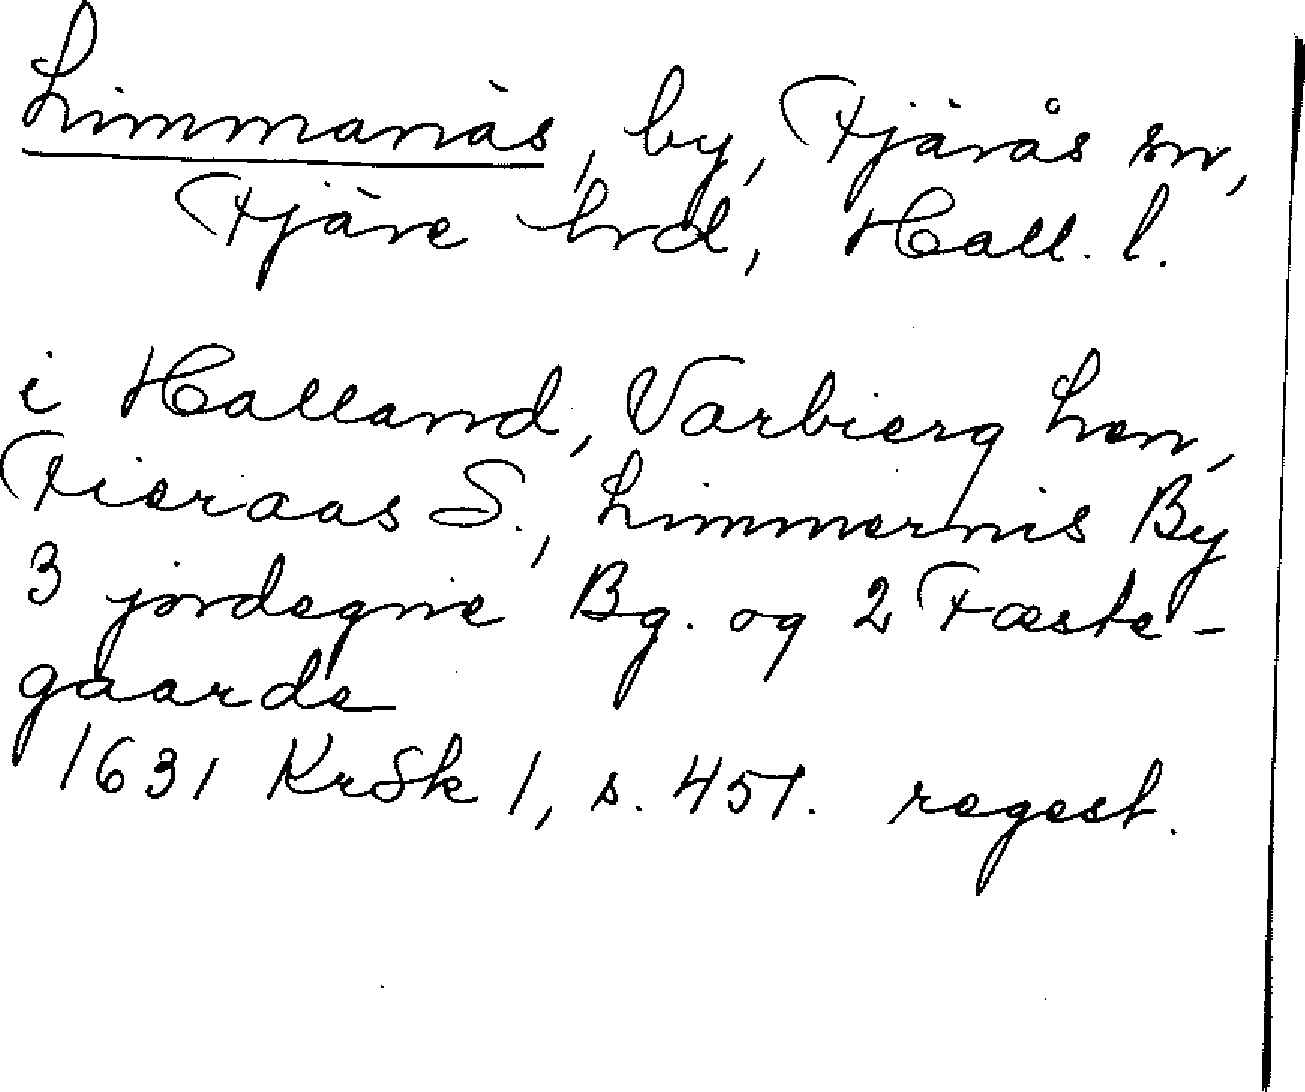 Limmanäs, by, Fjärås sn,
Fjäre hrd, Hall. l.
i Halland, Varbierg Len,
Fieraas S., Limmernis By
3 jordegne Bg. og 2 Fæste-
gaarde
1631 KrSk 1, s. 451. regest.